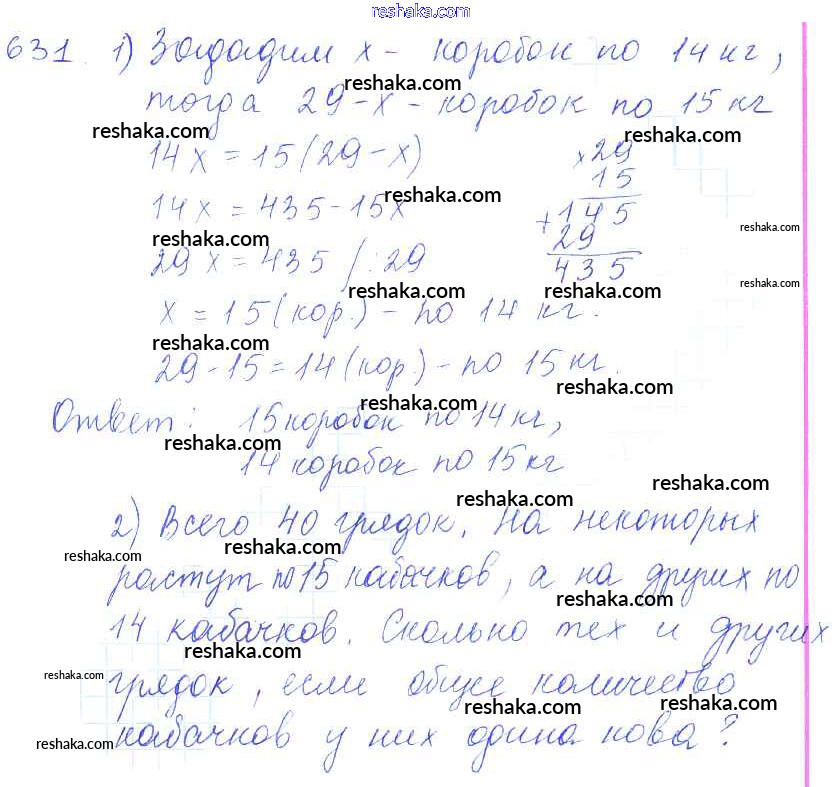 reshaka.com
631. 1) Зададим x - коробок по 14 кг,
reshaka.com
тогда 29-x - коробок по 15 кг
reshaka.com reshaka.com
14x = 15(29-x)
×29
15
reshaka.com
14x = 435-15x
+145
reshaka.com
reshaka.com
29
29x = 435 /:29
435
reshaka.com
reshaka.com reshaka.com
x = 15 (кор.) - по 14 кг.
reshaka.com
29-15 = 14 (кор.) - по 15 кг.
reshaka.com
reshaka.com
Ответ: 15 коробок по 14 кг,
reshaka.com
14 коробок по 15 кг
reshaka.com
reshaka.com
2) Всего 40 грядок. На некоторых
reshaka.com reshaka.com
растут по 15 кабачков, а на других по
reshaka.com
14 кабачков. Сколько тех и других
reshaka.com
reshaka.com
грядок, если общее количество
reshaka.com
кабачков у них одинаково?
reshaka.com reshaka.com